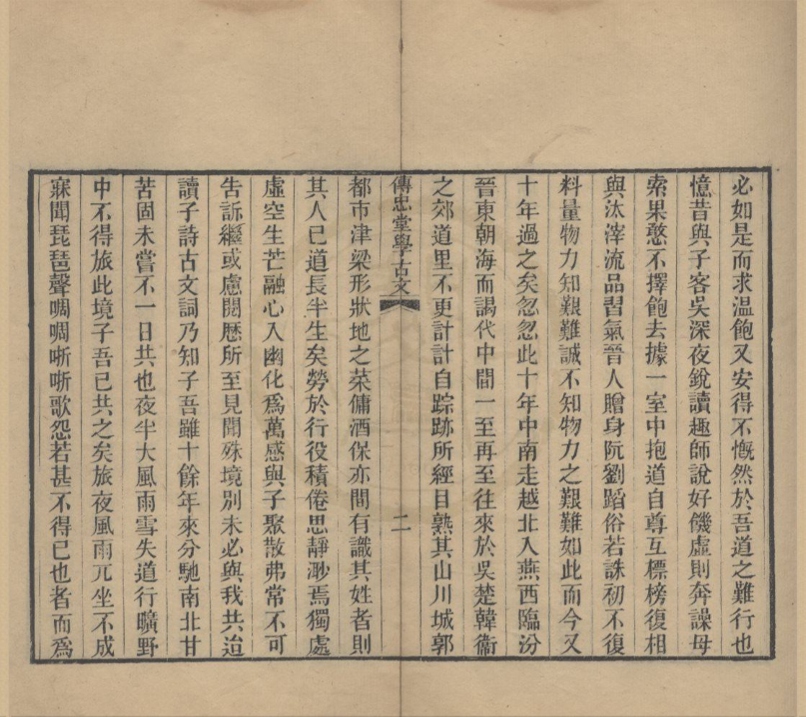 必如是而求溫飽又安得不慨然於吾道之難行也
憶昔與子客吳深夜銳讀趣師說好饑虛則奔譟毋
索果憨不擇飽去據一室中抱道自尊互標榜復相
與汰滓流品習氣晉人贈身阮劉蹈俗若誅初不復
料量物力知艱難誠不知物力之艱難如此而今又
十年過之矣忽忽此十年中南走越北入燕西臨汾
晉東朝海而謁代中間一至再至往來於吳楚韓衞
之郊道里不更計計自踪跡所經目熟其山川城郭
傳忠堂學古文
二
都市津梁形狀地之菜傭酒保亦間有識其姓者則
其人已道長半生矣勞於行役積倦思靜渺焉獨處
虛空生芒融心入幽化爲萬感與子聚散弗常不可
吿訴繼或慮閱歷所至見聞殊境別未必與我共迨
讀子詩古文詞乃知子吾雖十餘年來分馳南北甘
苦固未嘗不一日共也夜半大風雨雪失道行曠野
中不得旅此境子吾已共之矣旅夜風雨兀坐不成
寐聞琵琶聲啁啁哳哳歌怨若甚不得已也者而爲